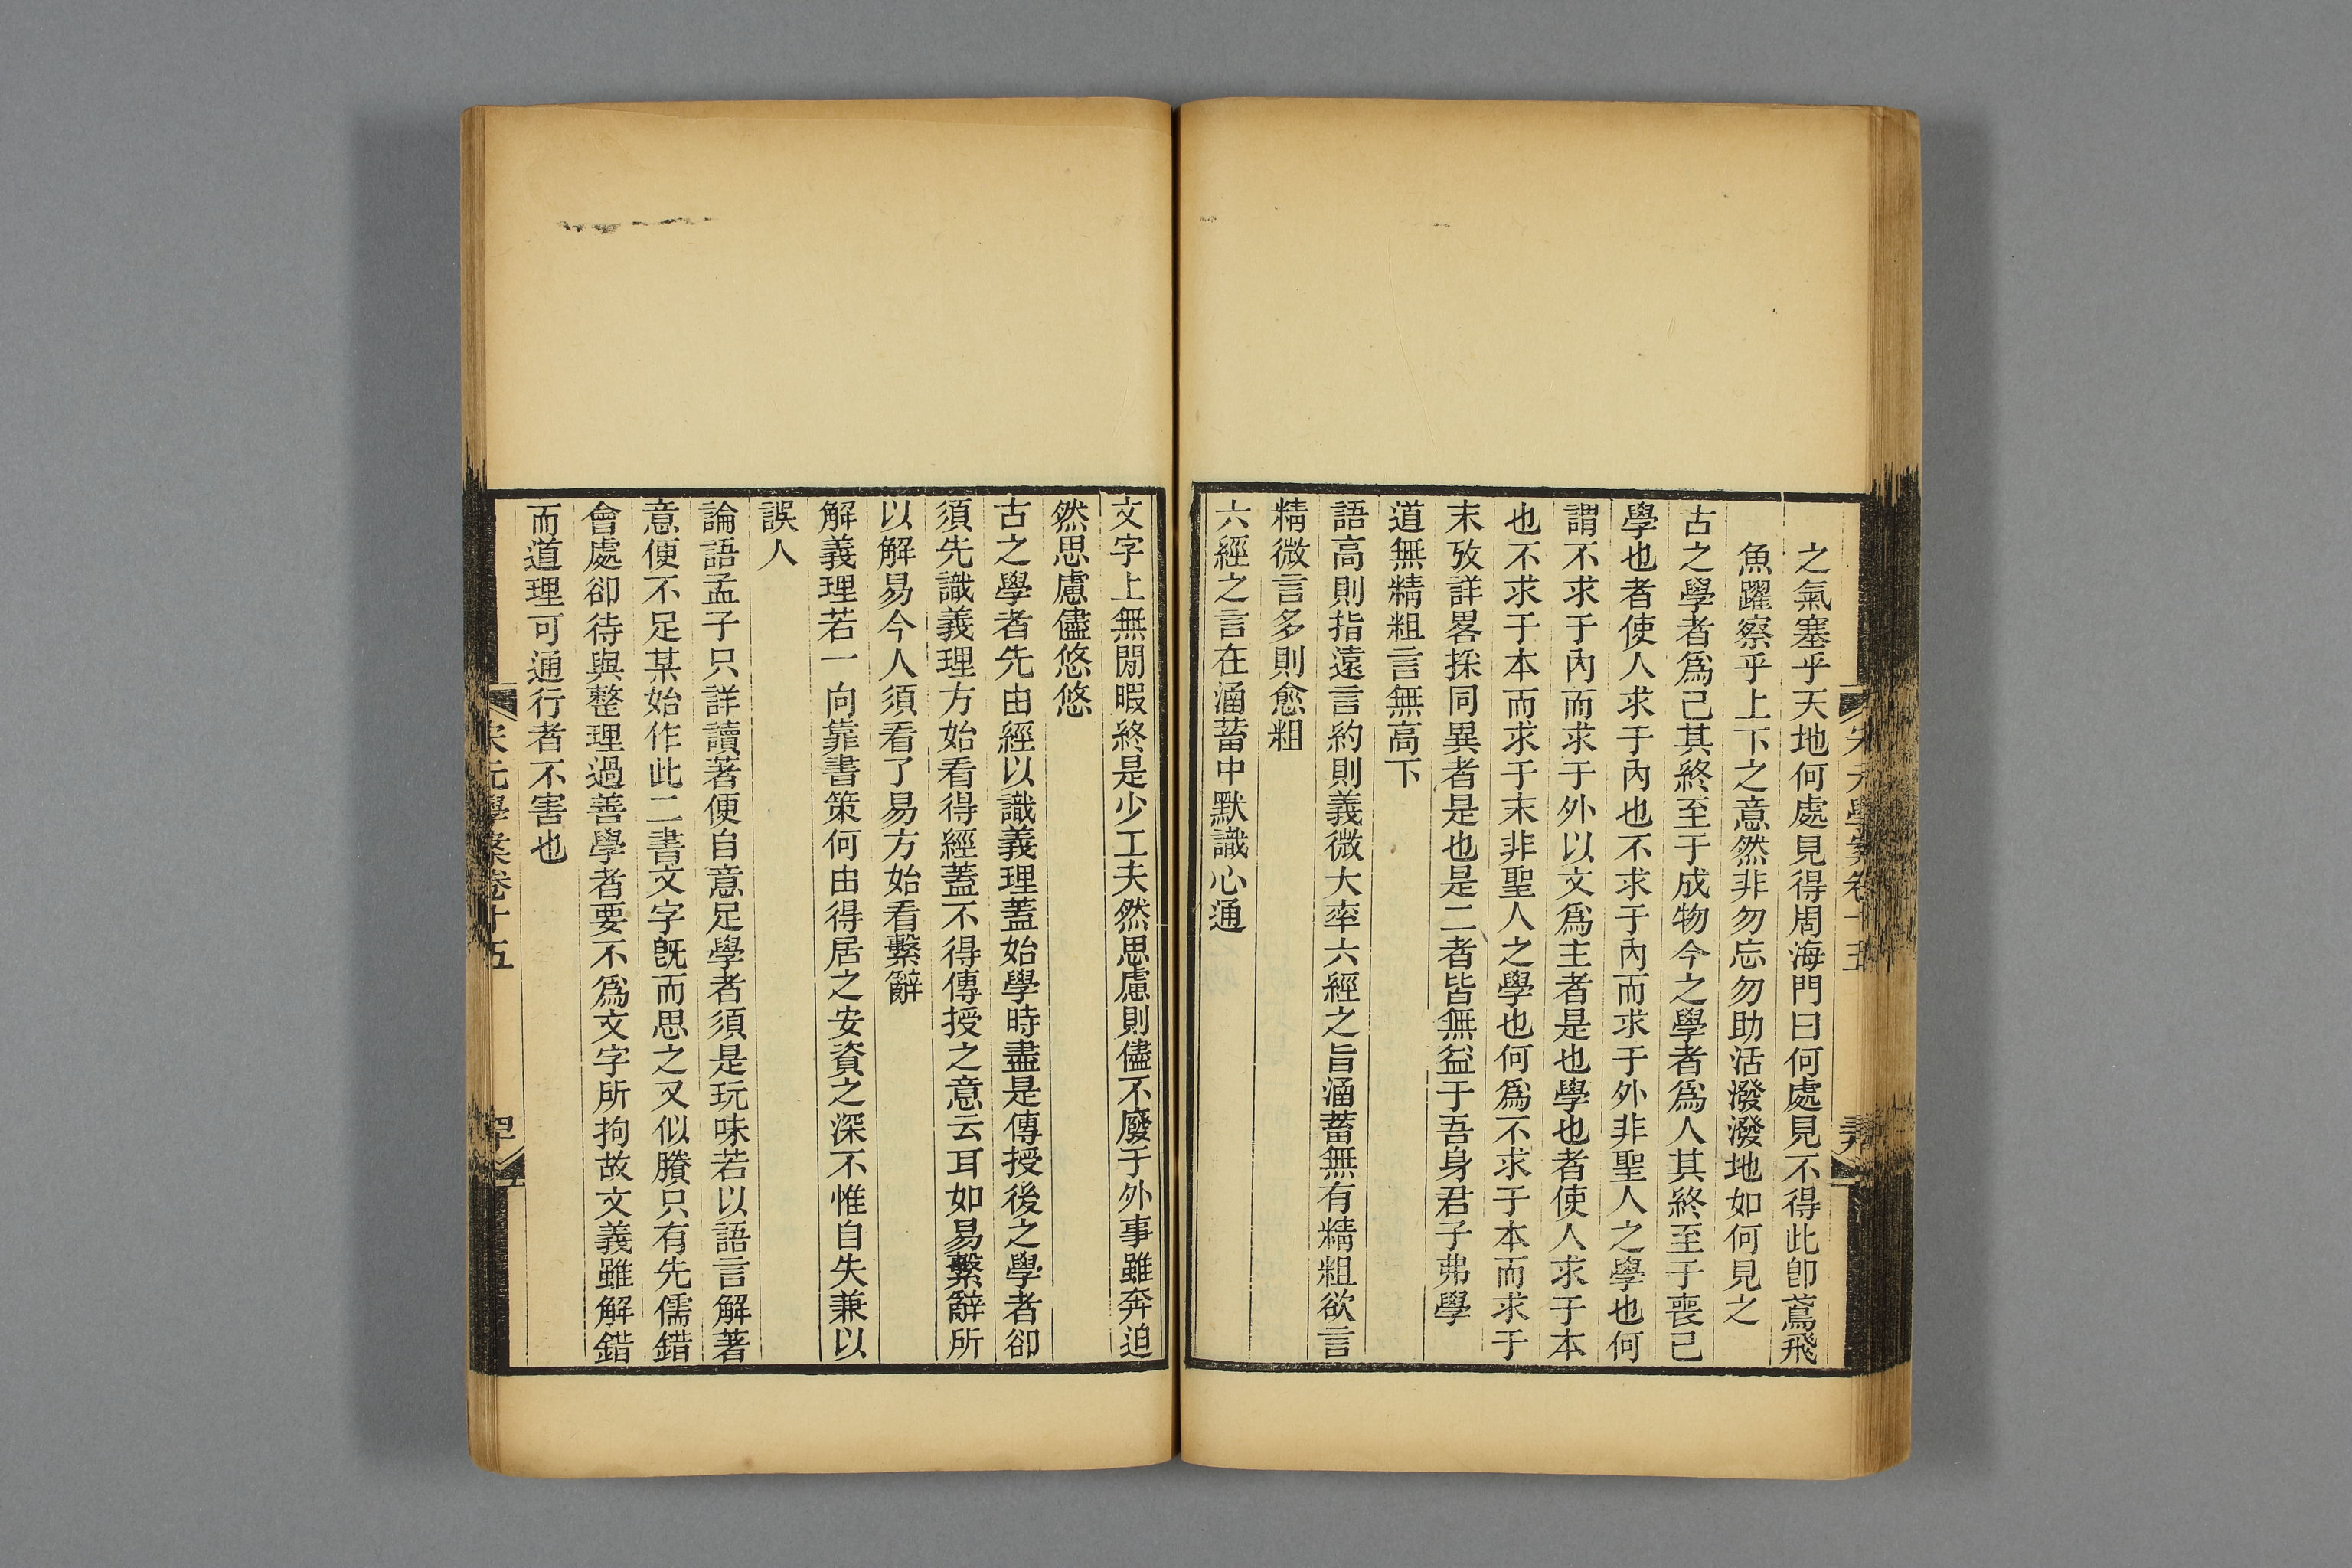 之氣塞乎天地何處見得周海門曰何處見不得此卽鳶飛
魚躍察乎上下之意然非勿忘勿助活潑潑地如何見之
古之學者爲己其終至于成物今之學者爲人其終至于喪己
學也者使人求于內也不求于內而求于外非聖人之學也何
謂不求于內而求于外以文爲主者是也學也者使人求于本
也不求于本而求于末非聖人之學也何爲不求于本而求于
末攷詳畧採同異者是也是二者皆無益于吾身君子弗學
道無精粗言無高下
語高則指遠言約則義微大率六經之旨涵蓄無有精粗欲言
精微言多則愈粗
六經之言在涵蓄中默識心通
文字上無閒暇終是少工夫然思慮則儘不廢于外事雖奔迫
然思慮儘悠悠
古之學者先由經以識義理蓋始學時盡是傳授後之學者卻
須先識義理方始看得經蓋不得傳授之意云耳如易繫辭所
以解易今人須看了易方始看繫辭
解義理若一向靠書策何由得居之安資之深不惟自失兼以
誤人
論語孟子只詳讀著便自意足學者須是玩味若以語言解著
意便不足某始作此二書文字旣而思之又似賸只有先儒錯
會處卻待與整理過善學者要不爲文字所拘故文義雖解錯
而道理可通行者不害也
宋元學案卷十五